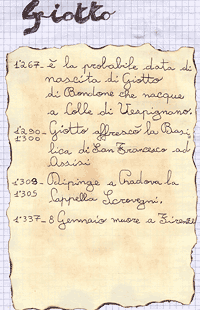 Giotto
1267- è la probabile data di
nascita di Giotto
di Bondone che nacque
a Colle di Vespignano.
1290- Giotto affrescò la Basi
1300 lica di San Francesco ad
Assisi
1303- Dipinge a Padova la
1305 Cappella Scrovegni.
1337- 8 Gennaio muore a Firenze